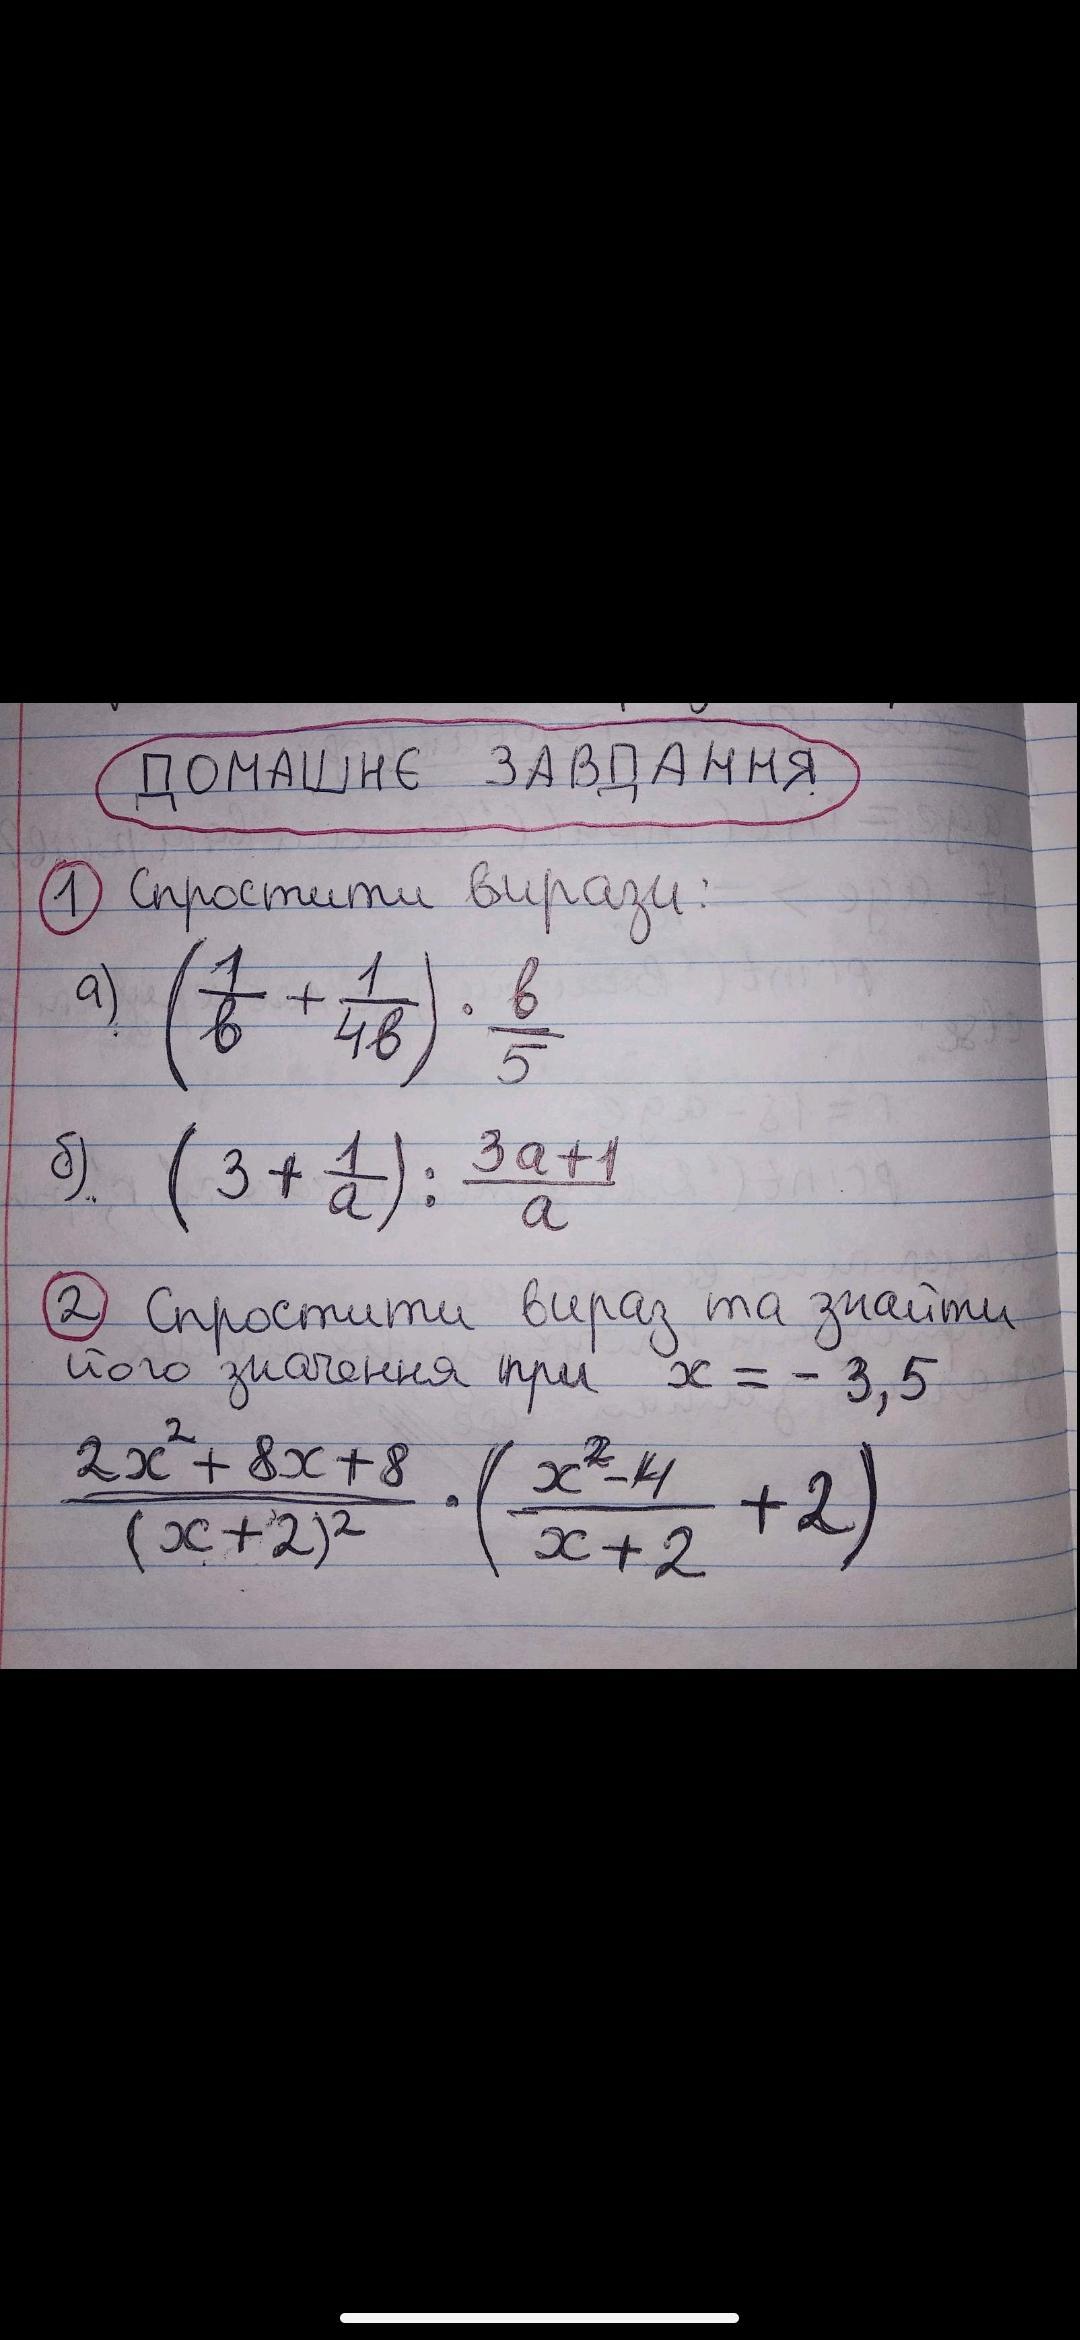 ДОМАШНЄ ЗАВДАННЯ
1 Спростити вирази:
а) (1/в + 1/4в) · в/5
б) (3 + 1/а) : 3а+1/а
2 Спростити вираз та знайти
його значення при x = - 3,5
2x² + 8x + 8/(x+2)² · (x² - 4/x + 2 + 2)